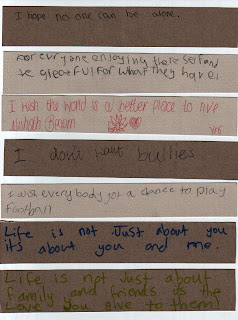 I hope no one can be alone.
for everyone enjoying there self and
be greatful for what they have.
I wish the world is a better place to live
Begum
I don't want bullies
I wish everybody got a chance to play
Football
Life is not Just about you
its about you and me.
Life is not Just about
family and friends its the
Love you give to them!